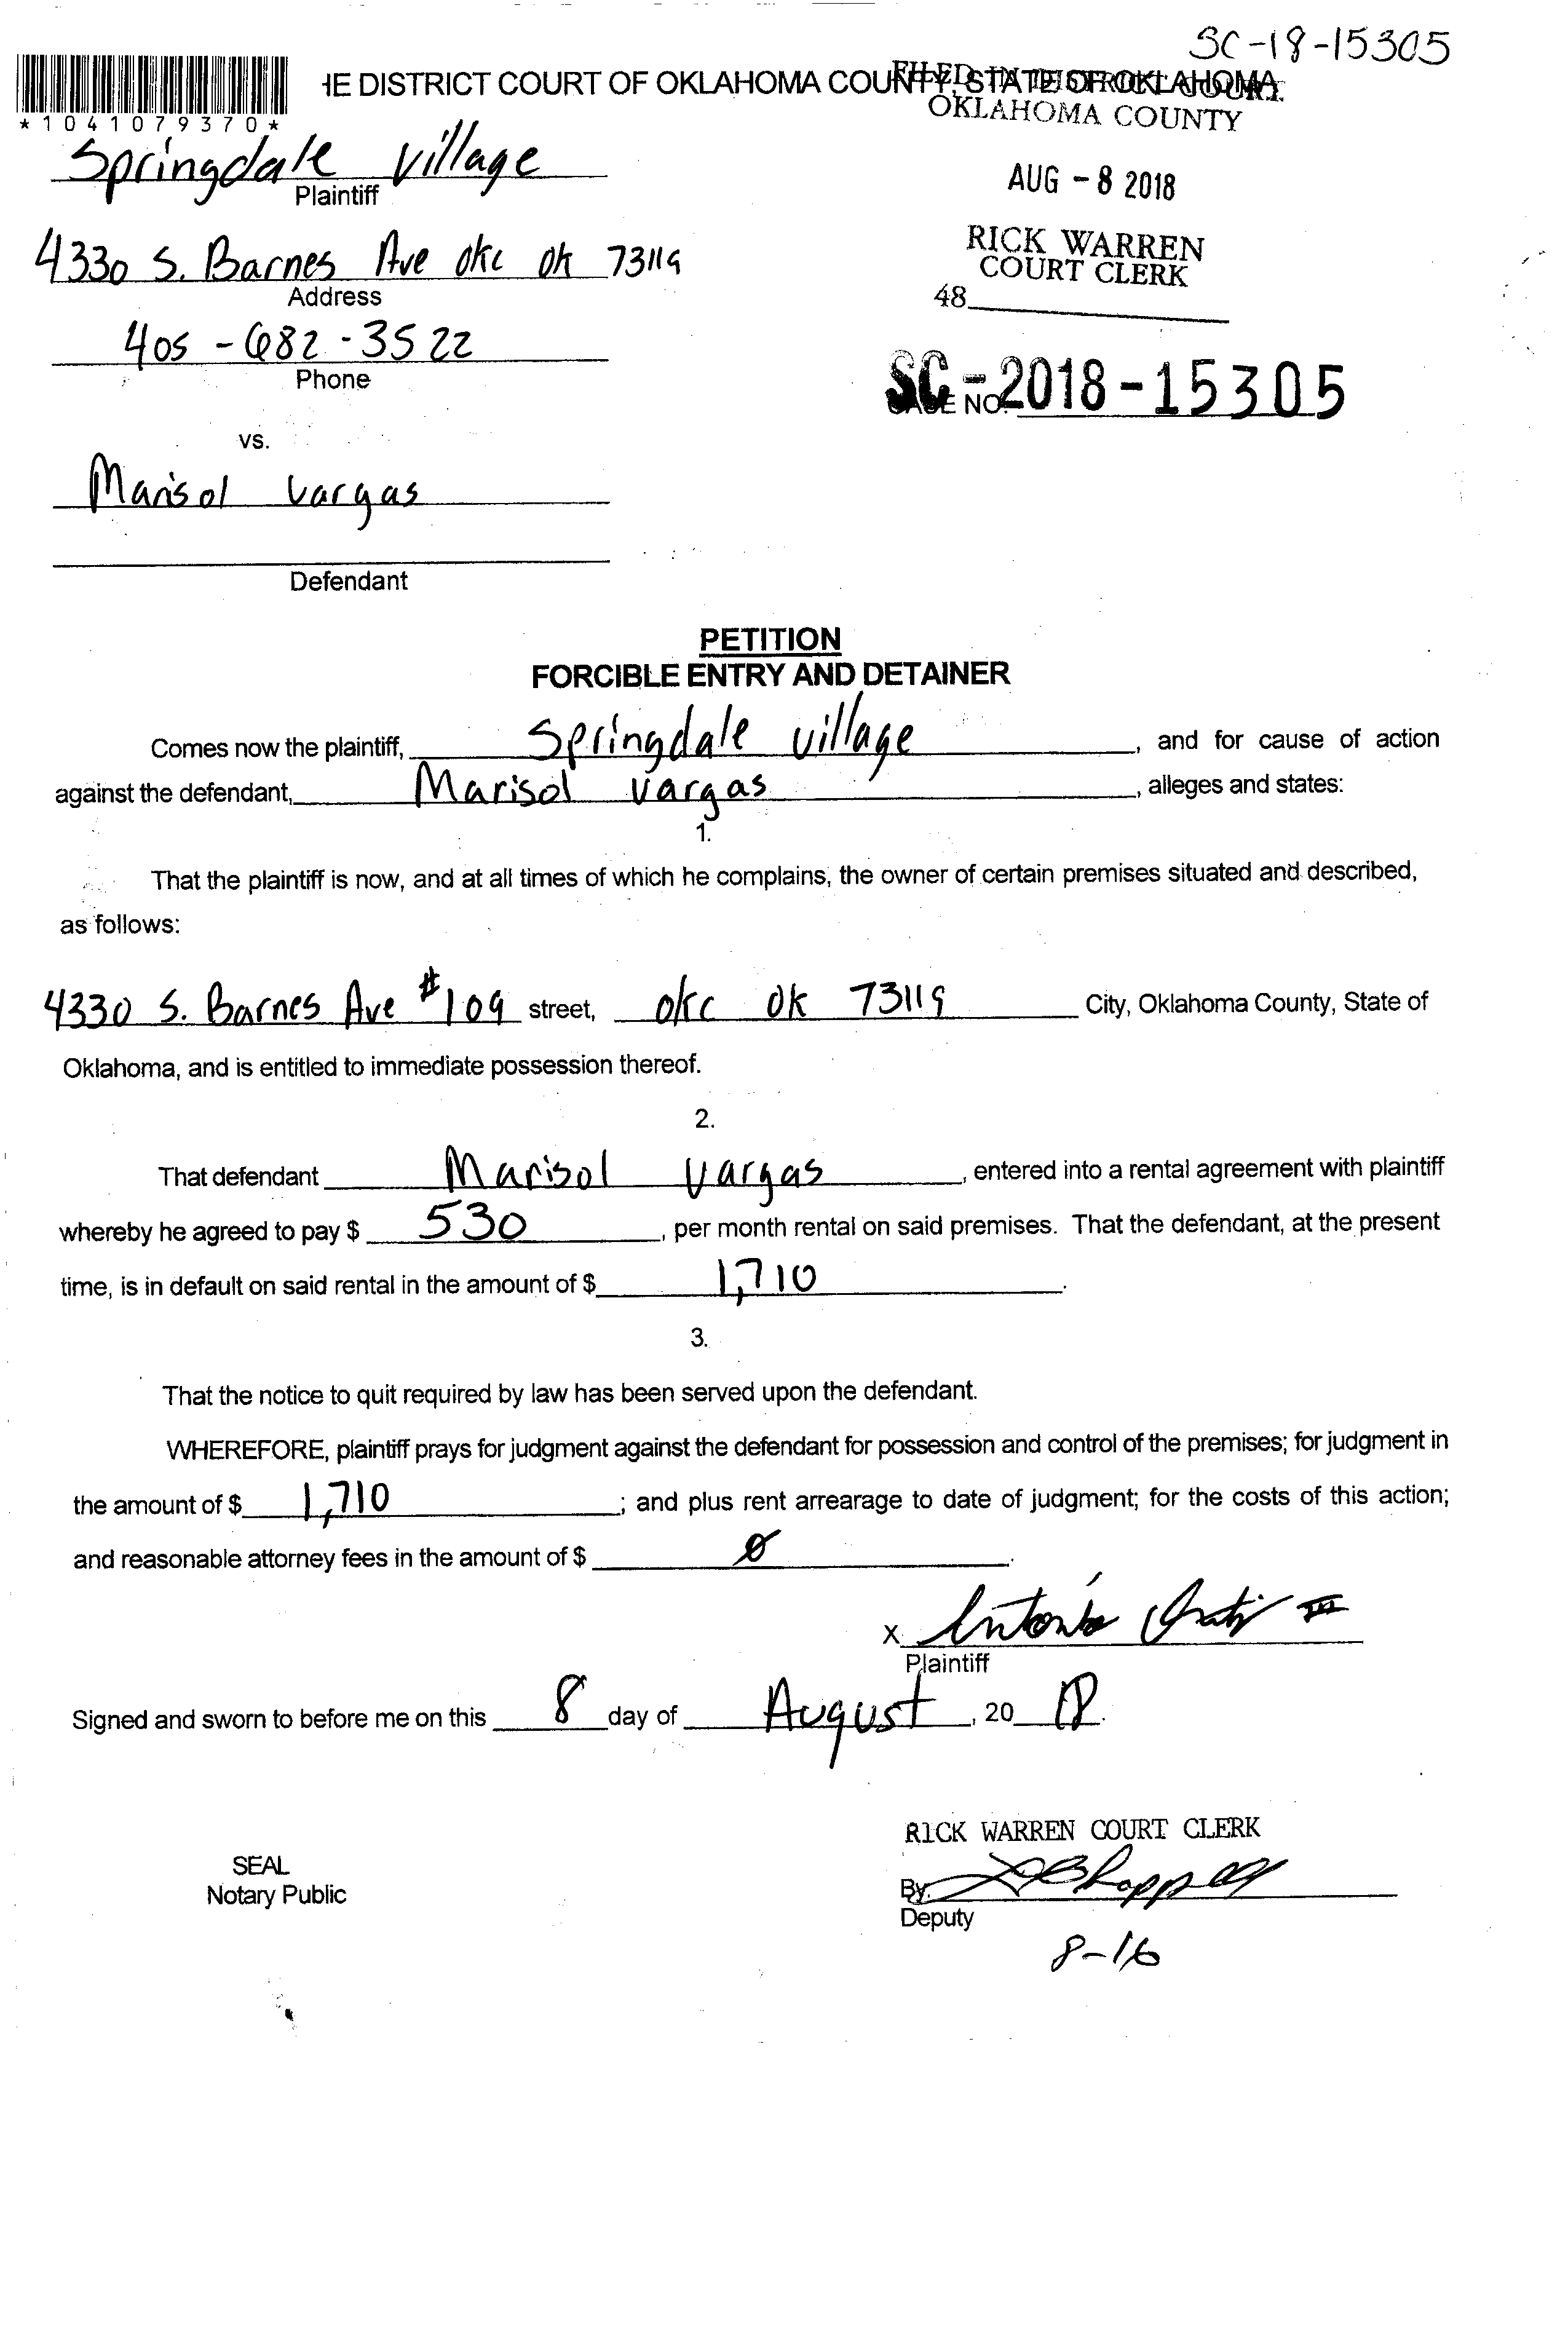 SC-18-15305
HE DISTRICT COURT OF OKLAHOMA COUNTY, STATE OF OKLAHOMA
FILED IN DISTRICT COURT
OKLAHOMA COUNTY
*1041079370*
Springdale Village
Plaintiff
AUG - 8 2018
4330 S. Barnes Ave okc ok 73119
Address
RICK WARREN
COURT CLERK
48
405-682-3522
Phone
SC-2018-15305
CASE NO.
vs.
Marisol Vargas
Defendant
PETITION
FORCIBLE ENTRY AND DETAINER
Comes now the plaintiff, Springdale Village, and for cause of action
against the defendant, Marisol Vargas, alleges and states:
1.
That the plaintiff is now, and at all times of which he complains, the owner of certain premises situated and described,
as follows:
4330 S. Barnes Ave #109 street, okc ok 73119 City, Oklahoma County, State of
Oklahoma, and is entitled to immediate possession thereof.
2.
That defendant Marisol Vargas, entered into a rental agreement with plaintiff
whereby he agreed to pay $ 530, per month rental on said premises. That the defendant, at the present
time, is in default on said rental in the amount of $ 1,710.
3.
That the notice to quit required by law has been served upon the defendant.
WHEREFORE, plaintiff prays for judgment against the defendant for possession and control of the premises; for judgment in
the amount of $ 1,710; and plus rent arrearage to date of judgment; for the costs of this action;
and reasonable attorney fees in the amount of $ 0.
X Antonio III
Plaintiff
Signed and sworn to before me on this 8 day of August, 20 18.
RICK WARREN COURT CLERK
SEAL
Notary Public
By.
Deputy
8-16